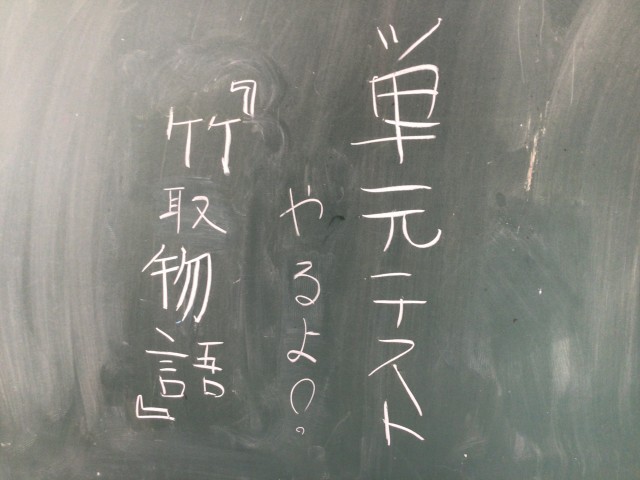 単元テスト
やるよ!。
『竹取物語』